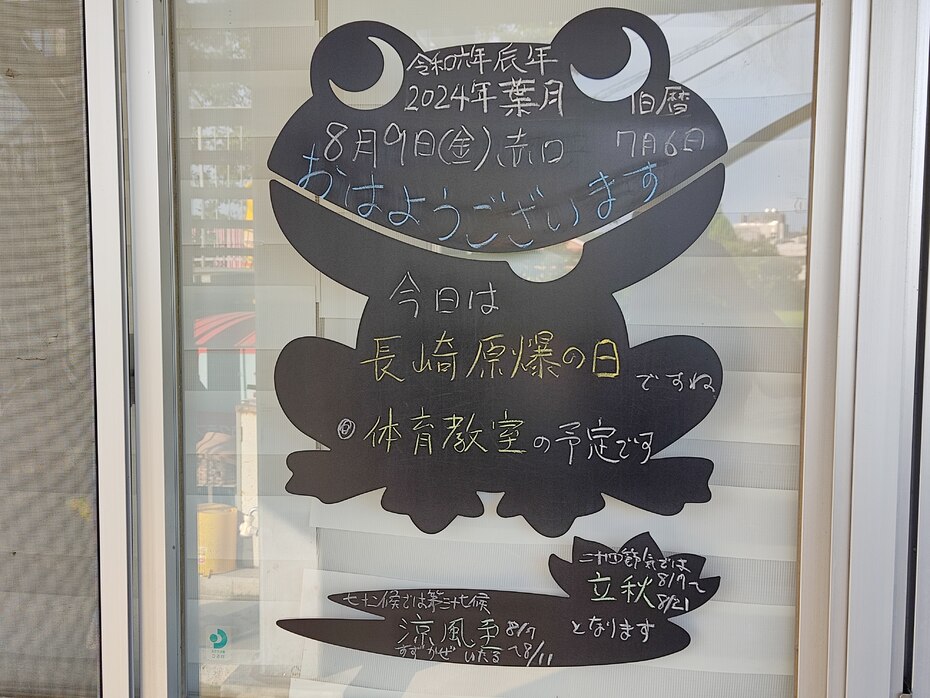 令和六年辰年
2024年葉月
旧暦
8月9日(金)赤口
7月6日
おはようございます
今日は
長崎原爆の日
ですね
体育教室の予定です
二十四節気では
立秋
8/7〜
8/21
となります
七十二候では第三十七候
涼風至
8/7
〜8/11
すずかぜ いたる